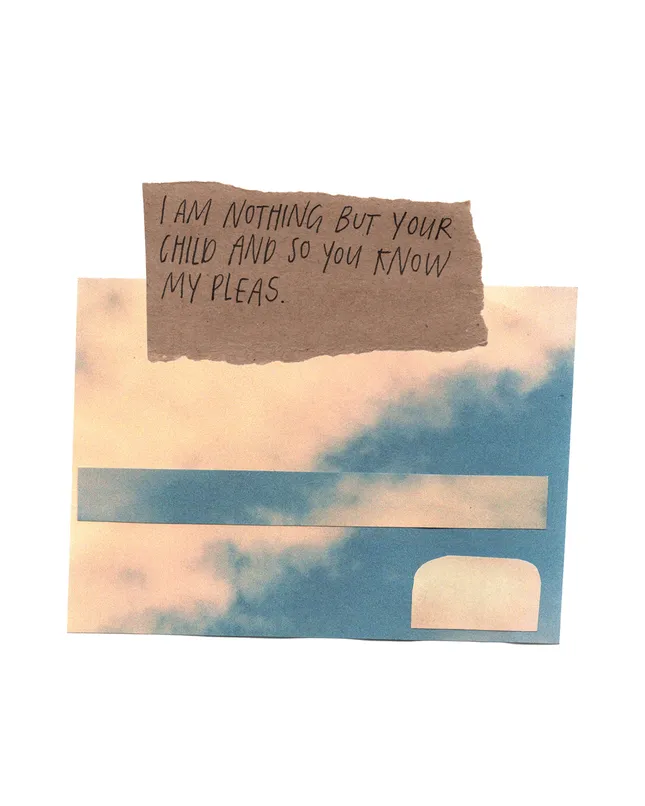 I AM NOTHING BUT YOUR
CHILD AND SO YOU KNOW
MY PLEAS.